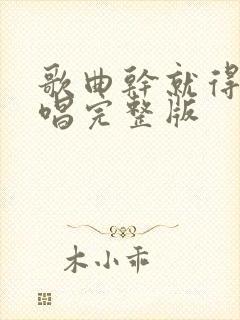 歌曲幹就得
唱完整版
木小乖